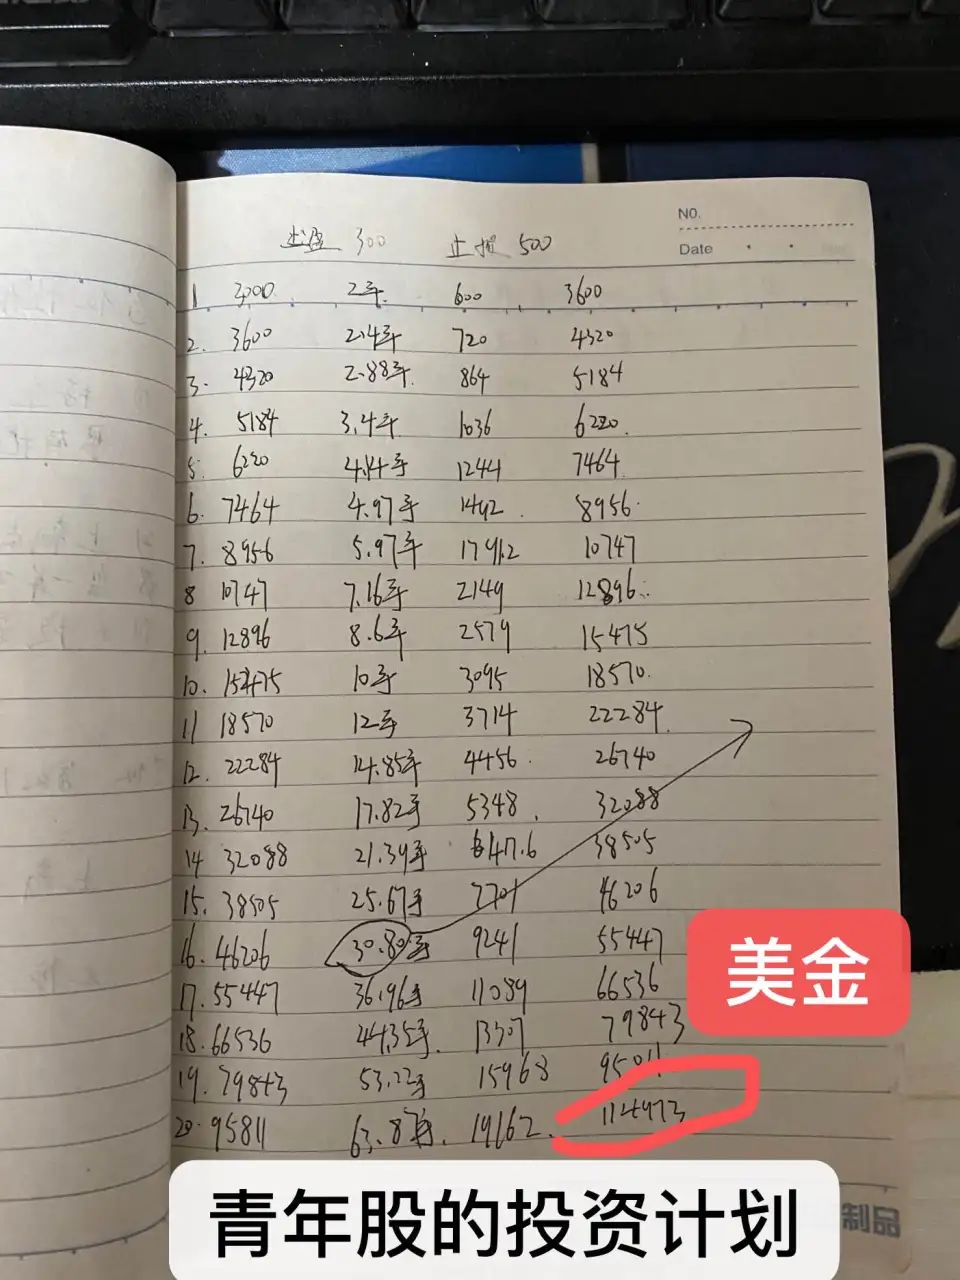 NO.
Date
止盈 300 止损 500
1 3000 2手 600 3600
2. 3600 2.4手 720 4320
3. 4320 2.88手 864 5184
4. 5184 3.4手 1036 6220
5. 6220 4.14手 1244 7464
6. 7464 4.97手 1492 8956
7. 8956 5.97手 1791.2 10747
8 10747 7.16手 2149 12896
9. 12896 8.6手 2579 15475
10. 15475 10手 3095 18570
11 18570 12手 3714 22284
12. 22284 14.85手 4456 26740
13. 26740 17.82手 5348 32088
14 32088 21.39手 6417.6 38505
15. 38505 25.67手 7701 46206
16. 46206 30.80手 9241 55447
17. 55447 36.96手 11089 66536
18. 66536 44.35手 13307 79843
19. 79843 53.22手 15968 95811
20. 95811 63.87手 19162 114973
美金
青年股的投资计划
制品